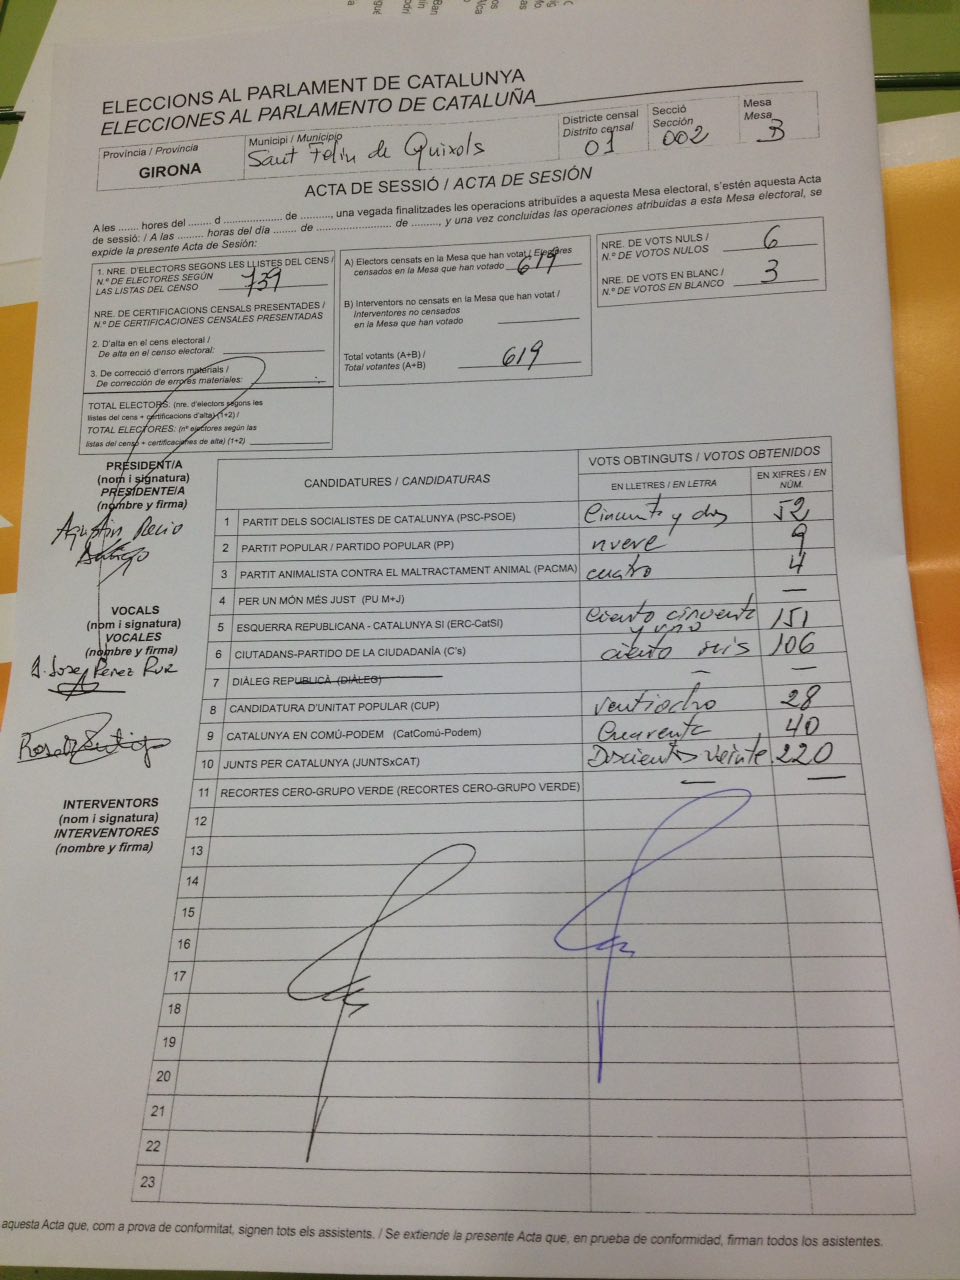 ELECCIONS AL PARLAMENT DE CATALUNYA
ELECCIONES AL PARLAMENTO DE CATALUÑA
Província / Provincia
GIRONA
Municipi / Municipio
Sant Feliu de Guíxols
Districte censal
Distrito censal
01
Secció
Sección
002
Mesa
Mesa
B
ACTA DE SESSIÓ / ACTA DE SESIÓN
A les ....... hores del ........ d .................... de .........., una vegada finalitzades les operacions atribuïdes a aquesta Mesa electoral, s'estén aquesta Acta
de sessió: / A las ......... horas del día ....... de ......................... de ........, y una vez concluidas las operaciones atribuidas a esta Mesa electoral, se
expide la presente Acta de Sesión:
1. NRE. D'ELECTORS SEGONS LES LLISTES DEL CENS /
N.º DE ELECTORES SEGÚN
LAS LISTAS DEL CENSO 739
NRE. DE CERTIFICACIONS CENSALS PRESENTADES /
N.º DE CERTIFICACIONES CENSALES PRESENTADAS
2. D'alta en el cens electoral /
De alta en el censo electoral:
3. De correcció d'errors materials /
De corrección de errores materiales:
TOTAL ELECTORS: (nre. d'electors segons les
llistes del cens + certificacions d'alta) (1+2) /
TOTAL ELECTORES: (nº electores según las
listas del censo + certificaciones de alta) (1+2)
A) Electors censats en la Mesa que han votat / Electores
censados en la Mesa que han votado 619
B) Interventors no censats en la Mesa que han votat /
Interventores no censados
en la Mesa que han votado
Total votants (A+B) /
Total votantes (A+B) 619
NRE. DE VOTS NULS /
N.º DE VOTOS NULOS 6
NRE. DE VOTS EN BLANC /
N.º DE VOTOS EN BLANCO 3
PRESIDENT/A
(nom i signatura)
PRESIDENTE/A
(nombre y firma)
Agustín Recio
VOCALS
(nom i signatura)
VOCALES
(nombre y firma)
Jose Pérez Ruz
INTERVENTORS
(nom i signatura)
INTERVENTORES
(nombre y firma)
CANDIDATURES / CANDIDATURAS
VOTS OBTINGUTS / VOTOS OBTENIDOS
EN LLETRES / EN LETRA
EN XIFRES / EN
NÚM.
1 PARTIT DELS SOCIALISTES DE CATALUNYA (PSC-PSOE) Cincuenta y dos 52
2 PARTIT POPULAR / PARTIDO POPULAR (PP) nueve 9
3 PARTIT ANIMALISTA CONTRA EL MALTRACTAMENT ANIMAL (PACMA) cuatro 4
4 PER UN MÓN MÉS JUST (PU M+J) —
5 ESQUERRA REPUBLICANA - CATALUNYA SI (ERC-CatSí) Ciento cincuenta y uno 151
6 CIUTADANS-PARTIDO DE LA CIUDADANÍA (C's) ciento seis 106
7 DIÀLEG REPUBLICÀ (DIÀLEG) — —
8 CANDIDATURA D'UNITAT POPULAR (CUP) ventiocho 28
9 CATALUNYA EN COMÚ-PODEM (CatComú-Podem) Cuarenta 40
10 JUNTS PER CATALUNYA (JUNTSxCAT) Doscientos veinte 220
11 RECORTES CERO-GRUPO VERDE (RECORTES CERO-GRUPO VERDE) — —
12
13
14
15
16
17
18
19
20
21
22
23
aquesta Acta que, com a prova de conformitat, signen tots els assistents. / Se extiende la presente Acta que, en prueba de conformidad, firman todos los asistentes.